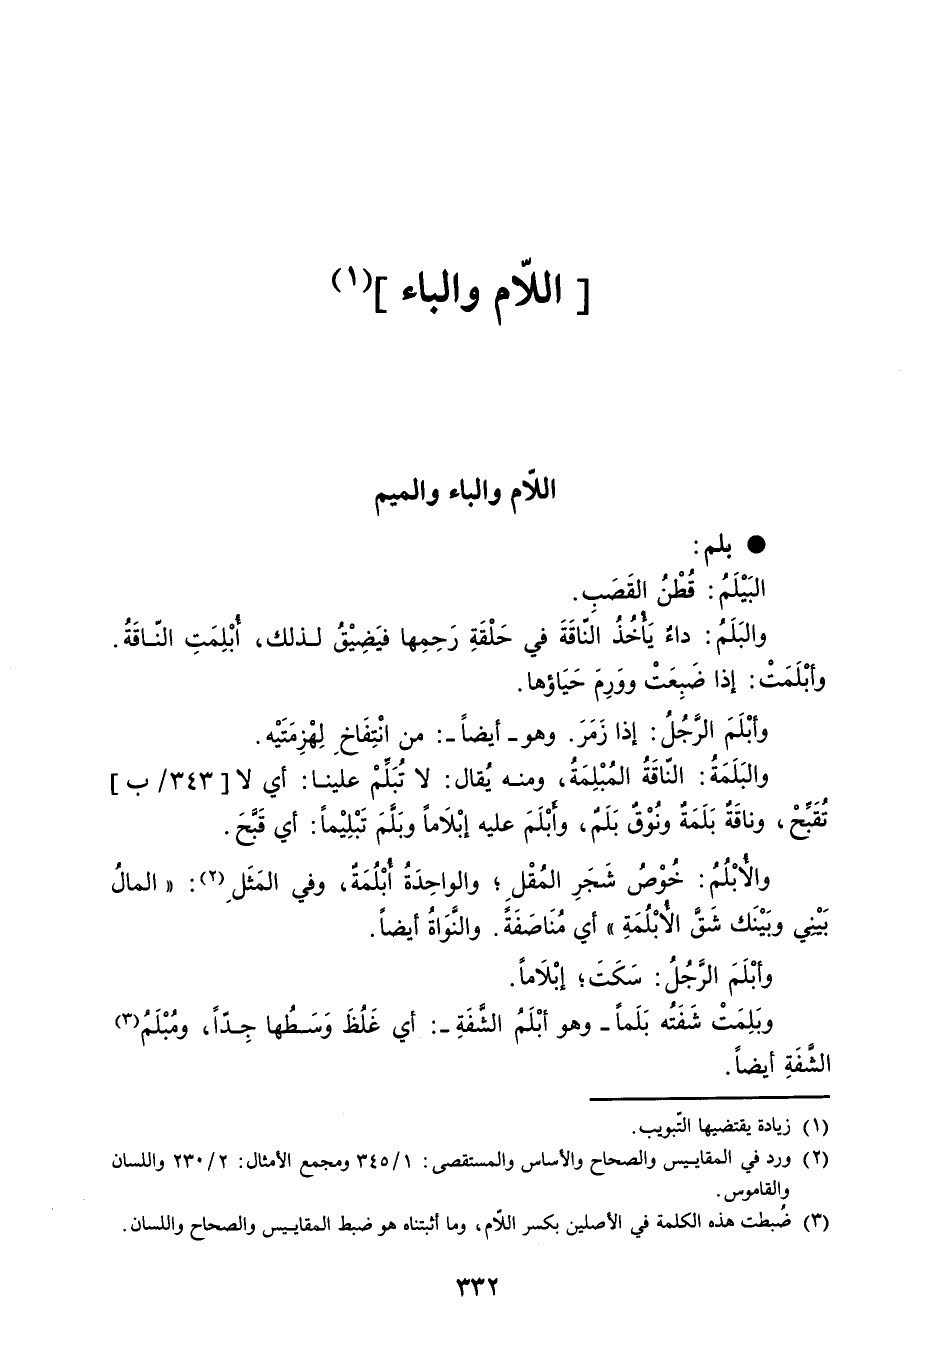 [ اللّام والباء ](١)
اللّام والباء والميم
● بلم:
البَيْلَمُ: قُطْنُ القَصَبِ.
والبَلَمُ: داءٌ يَأْخُذُ النّاقَةَ في حَلْقَةِ رَحِمِها فيَضِيْقُ لذلك، أُبْلِمَتِ النّاقَةُ.
وأبْلَمَتْ: إذا ضَبِعَتْ ووَرِمَ حَيَاؤها.
وأبْلَمَ الرَّجُلُ: إذا زَمَرَ. وهو ـ أيضاً ـ: من انْتِفَاخِ لِهْزِمَتَيْه.
والبَلَمَةُ: النّاقَةُ المُبْلِمَةُ، ومنه يُقال: لا تُبَلِّمْ علينا: أي لا [ ٣٤٣/ ب ]
تُقَبِّحْ، وناقَةٌ بَلَمَةٌ ونُوْقٌ بَلَمٌ، وأَبْلَمَ عليه إبْلَاماً وبَلَّمَ تَبْلِيْماً: أي قَبَّحَ.
والأُبْلُمُ: خُوْصُ شَجَرِ المُقْلِ؛ والواحِدَةُ أُبْلُمَةٌ، وفي المَثَلِ(٢): « المالُ
بَيْنِي وبَيْنَك شَقَّ الأُبْلُمَةِ » أي مُنَاصَفَةً. والنَّوَاةُ أيضاً.
وأبْلَمَ الرَّجُلُ: سَكَتَ؛ إبْلَاماً.
وبَلِمَتْ شَفَتُه بَلَماً ـ وهو أبْلَمُ الشَّفَةِ ـ: أي غَلُظَ وَسَطُها جِدّاً، ومُبْلَمُ(٣)
الشَّفَةِ أيضاً.
(١) زيادة يقتضيها التّبويب.
(٢) ورد في المقاييس والصحاح والأساس والمستقصى: ٣٤٥/١ ومجمع الأمثال: ٢٣٠/٢ واللسان
والقاموس.
(٣) ضُبطت هذه الكلمة في الأصلين بكسر اللّام، وما أثبتناه هو ضبط المقاييس والصحاح واللسان.
٣٣٢